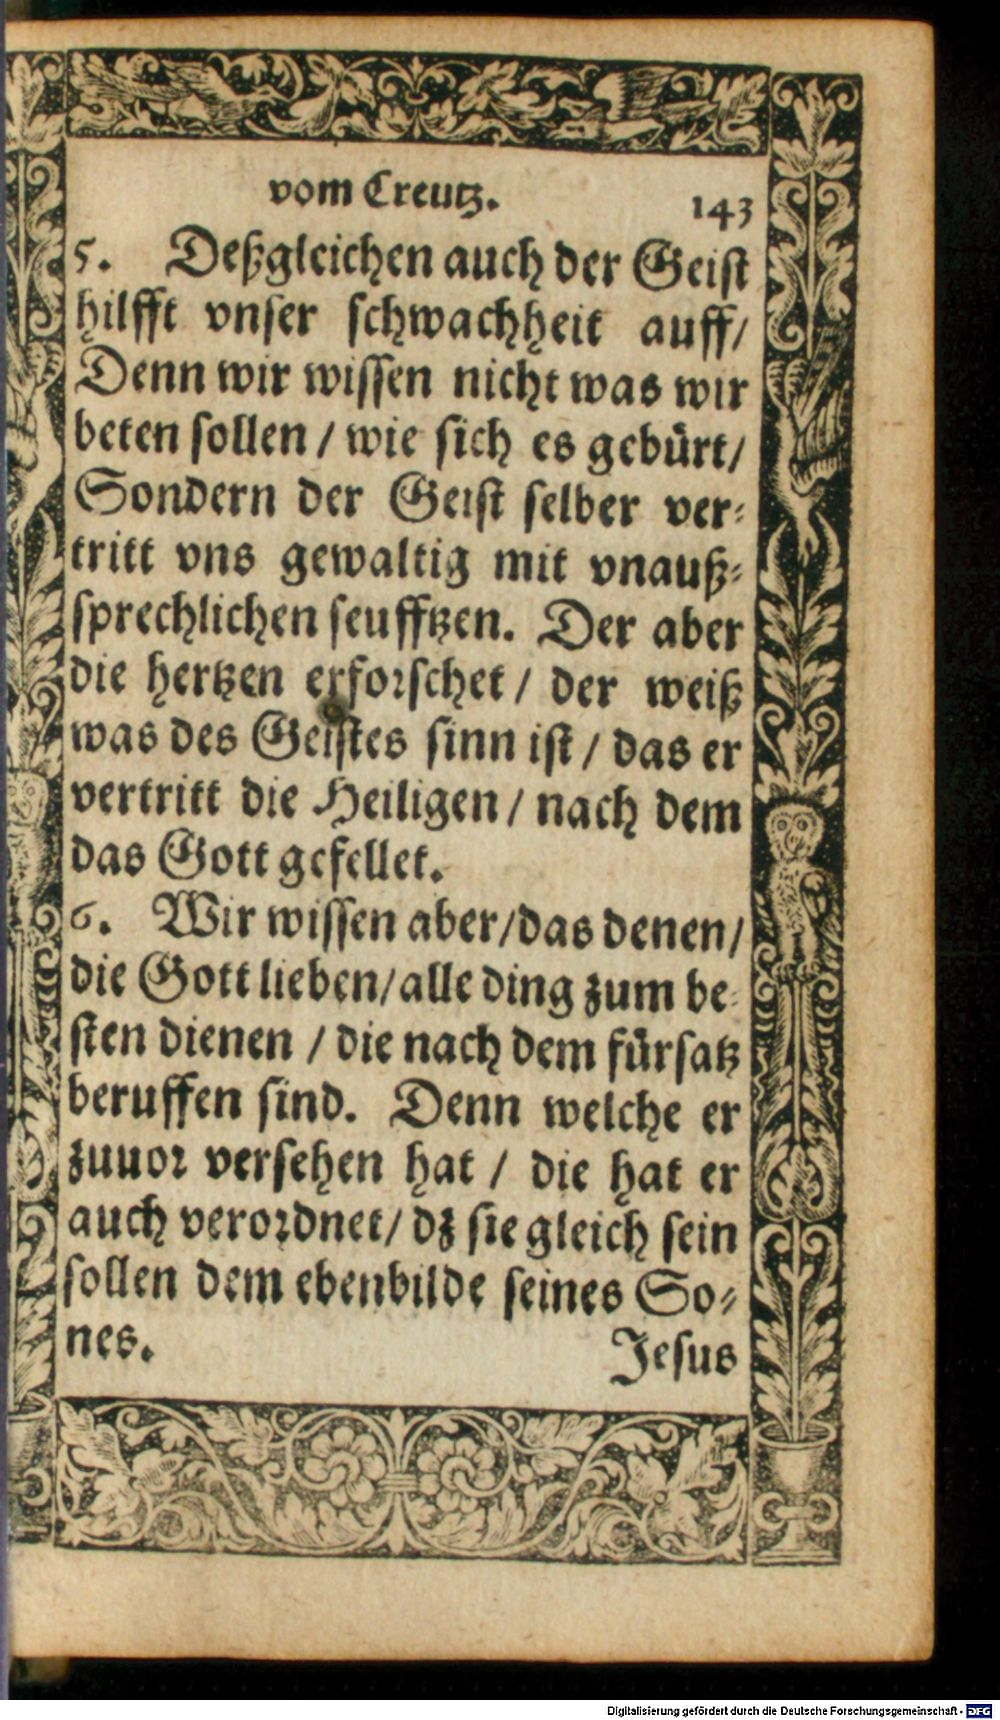 vom Creutz.
143
5. Deßgleichen auch der Geist
hilfft vnser schwachheit auff/
Denn wir wissen nicht was wir
beten sollen / wie sich es gebürt/
Sondern der Geist selber ver-
tritt vns gewaltig mit vnauß-
sprechlichen seufftzen. Der aber
die hertzen erforschet / der weiß
was des Geistes sinn ist / das er
vertritt die Heiligen / nach dem
das Gott gefellet.
6. Wir wissen aber/das denen/
die Gott lieben/alle ding zum be-
sten dienen / die nach dem fürsatz
beruffen sind. Denn welche er
zuuor versehen hat / die hat er
auch verordnet/ dz sie gleich sein
sollen dem ebenbilde seines So-
nes.
Jesus
Digitalisierung gefördert durch die Deutsche Forschungsgemeinschaft - DFG